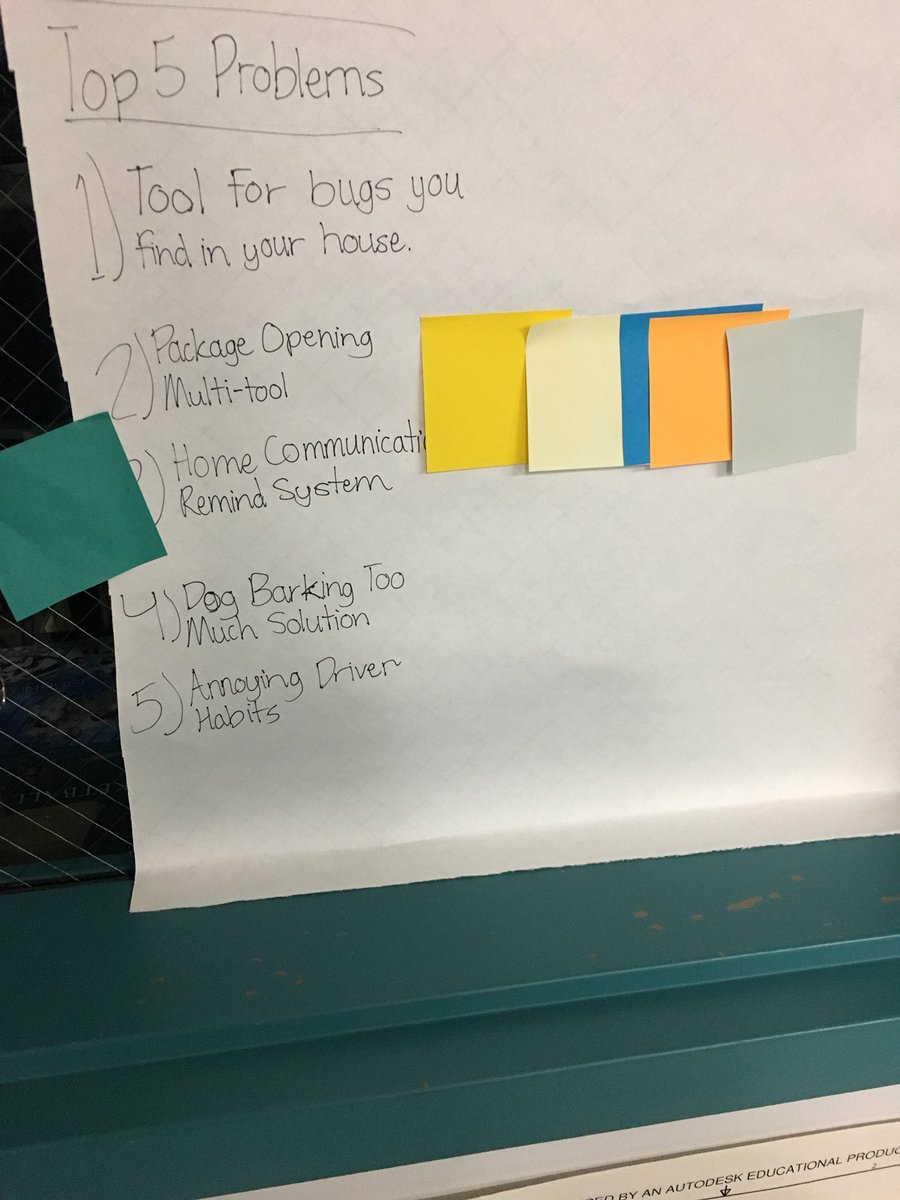 Top 5 Problems
1) Tool for bugs you
find in your house.
2) Package Opening
Multi-tool
3) Home Communicati
Remind System
4) Dog Barking Too
Much Solution
5) Annoying Driver
Habits
BY AN AUTODESK EDUCATIONAL PRODUC
2